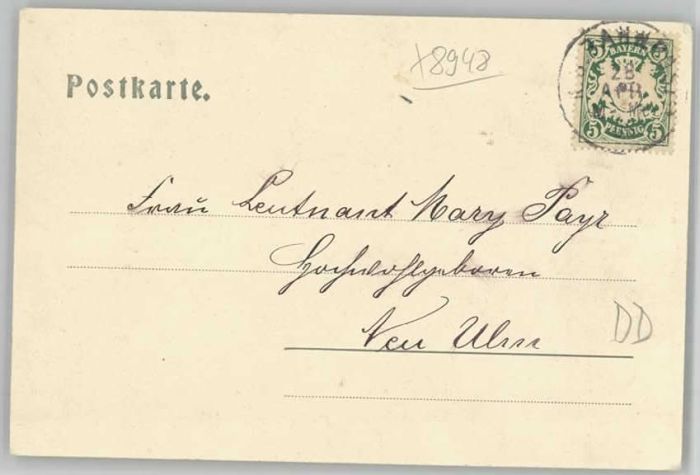 x8948
BAYERN
28
APR.
5 PFENNIG 5
Postkarte.
Frau Leutnant Mary Payr
Hochwohlgeboren
Neu Ulm
DD